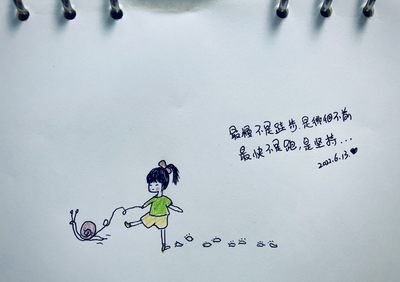 最慢不是跬步，是徘徊不前
最快不是跑，是坚持...
2022.6.13.